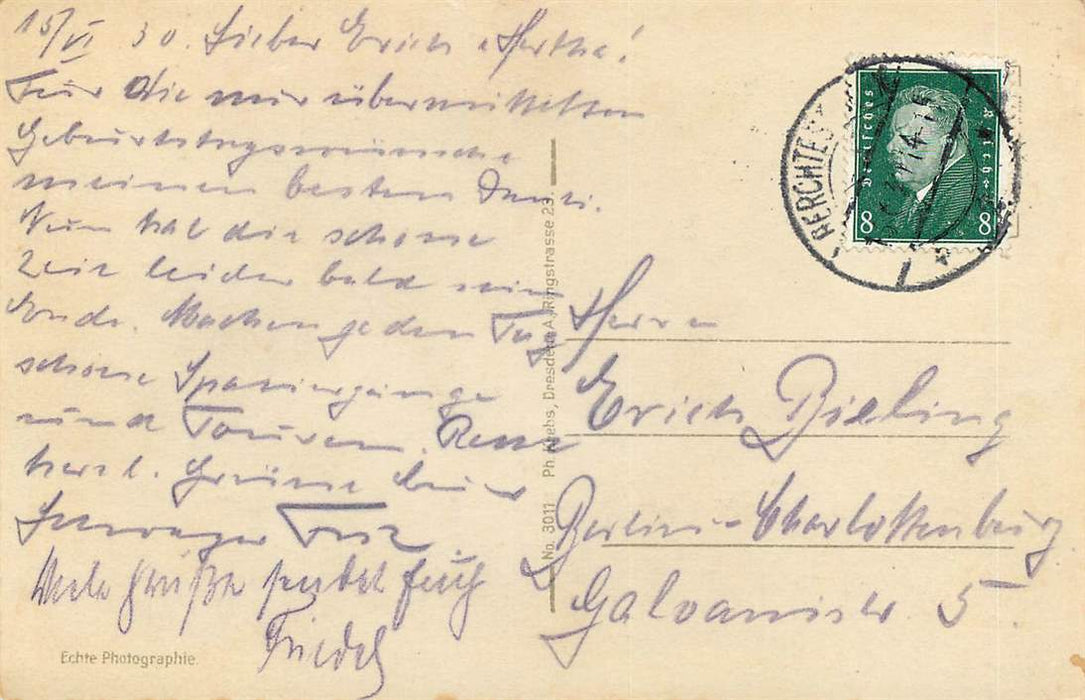 15/VI 30. Lieber Erich u Hertha!
Für die mir übermittelten
Geburtstagswünsche
meinen besten Dank.
Nun hat die schöne
Zeit leider bald ein
Ende. Machen jeden Tag
schöne Spaziergänge
und Touren.
herzl. Grüsse Euer
Schwager
Viele Grüße sendet Euch
Friedel
Echte Photographie
No. 3011 Ph. Krebs, Dresden A, Ringstrasse 23
BERCHTES
Deutsches Reich
8 8
Herrn
Erich Bieling
Berlin-Charlottenburg
Galvanistr. 5.